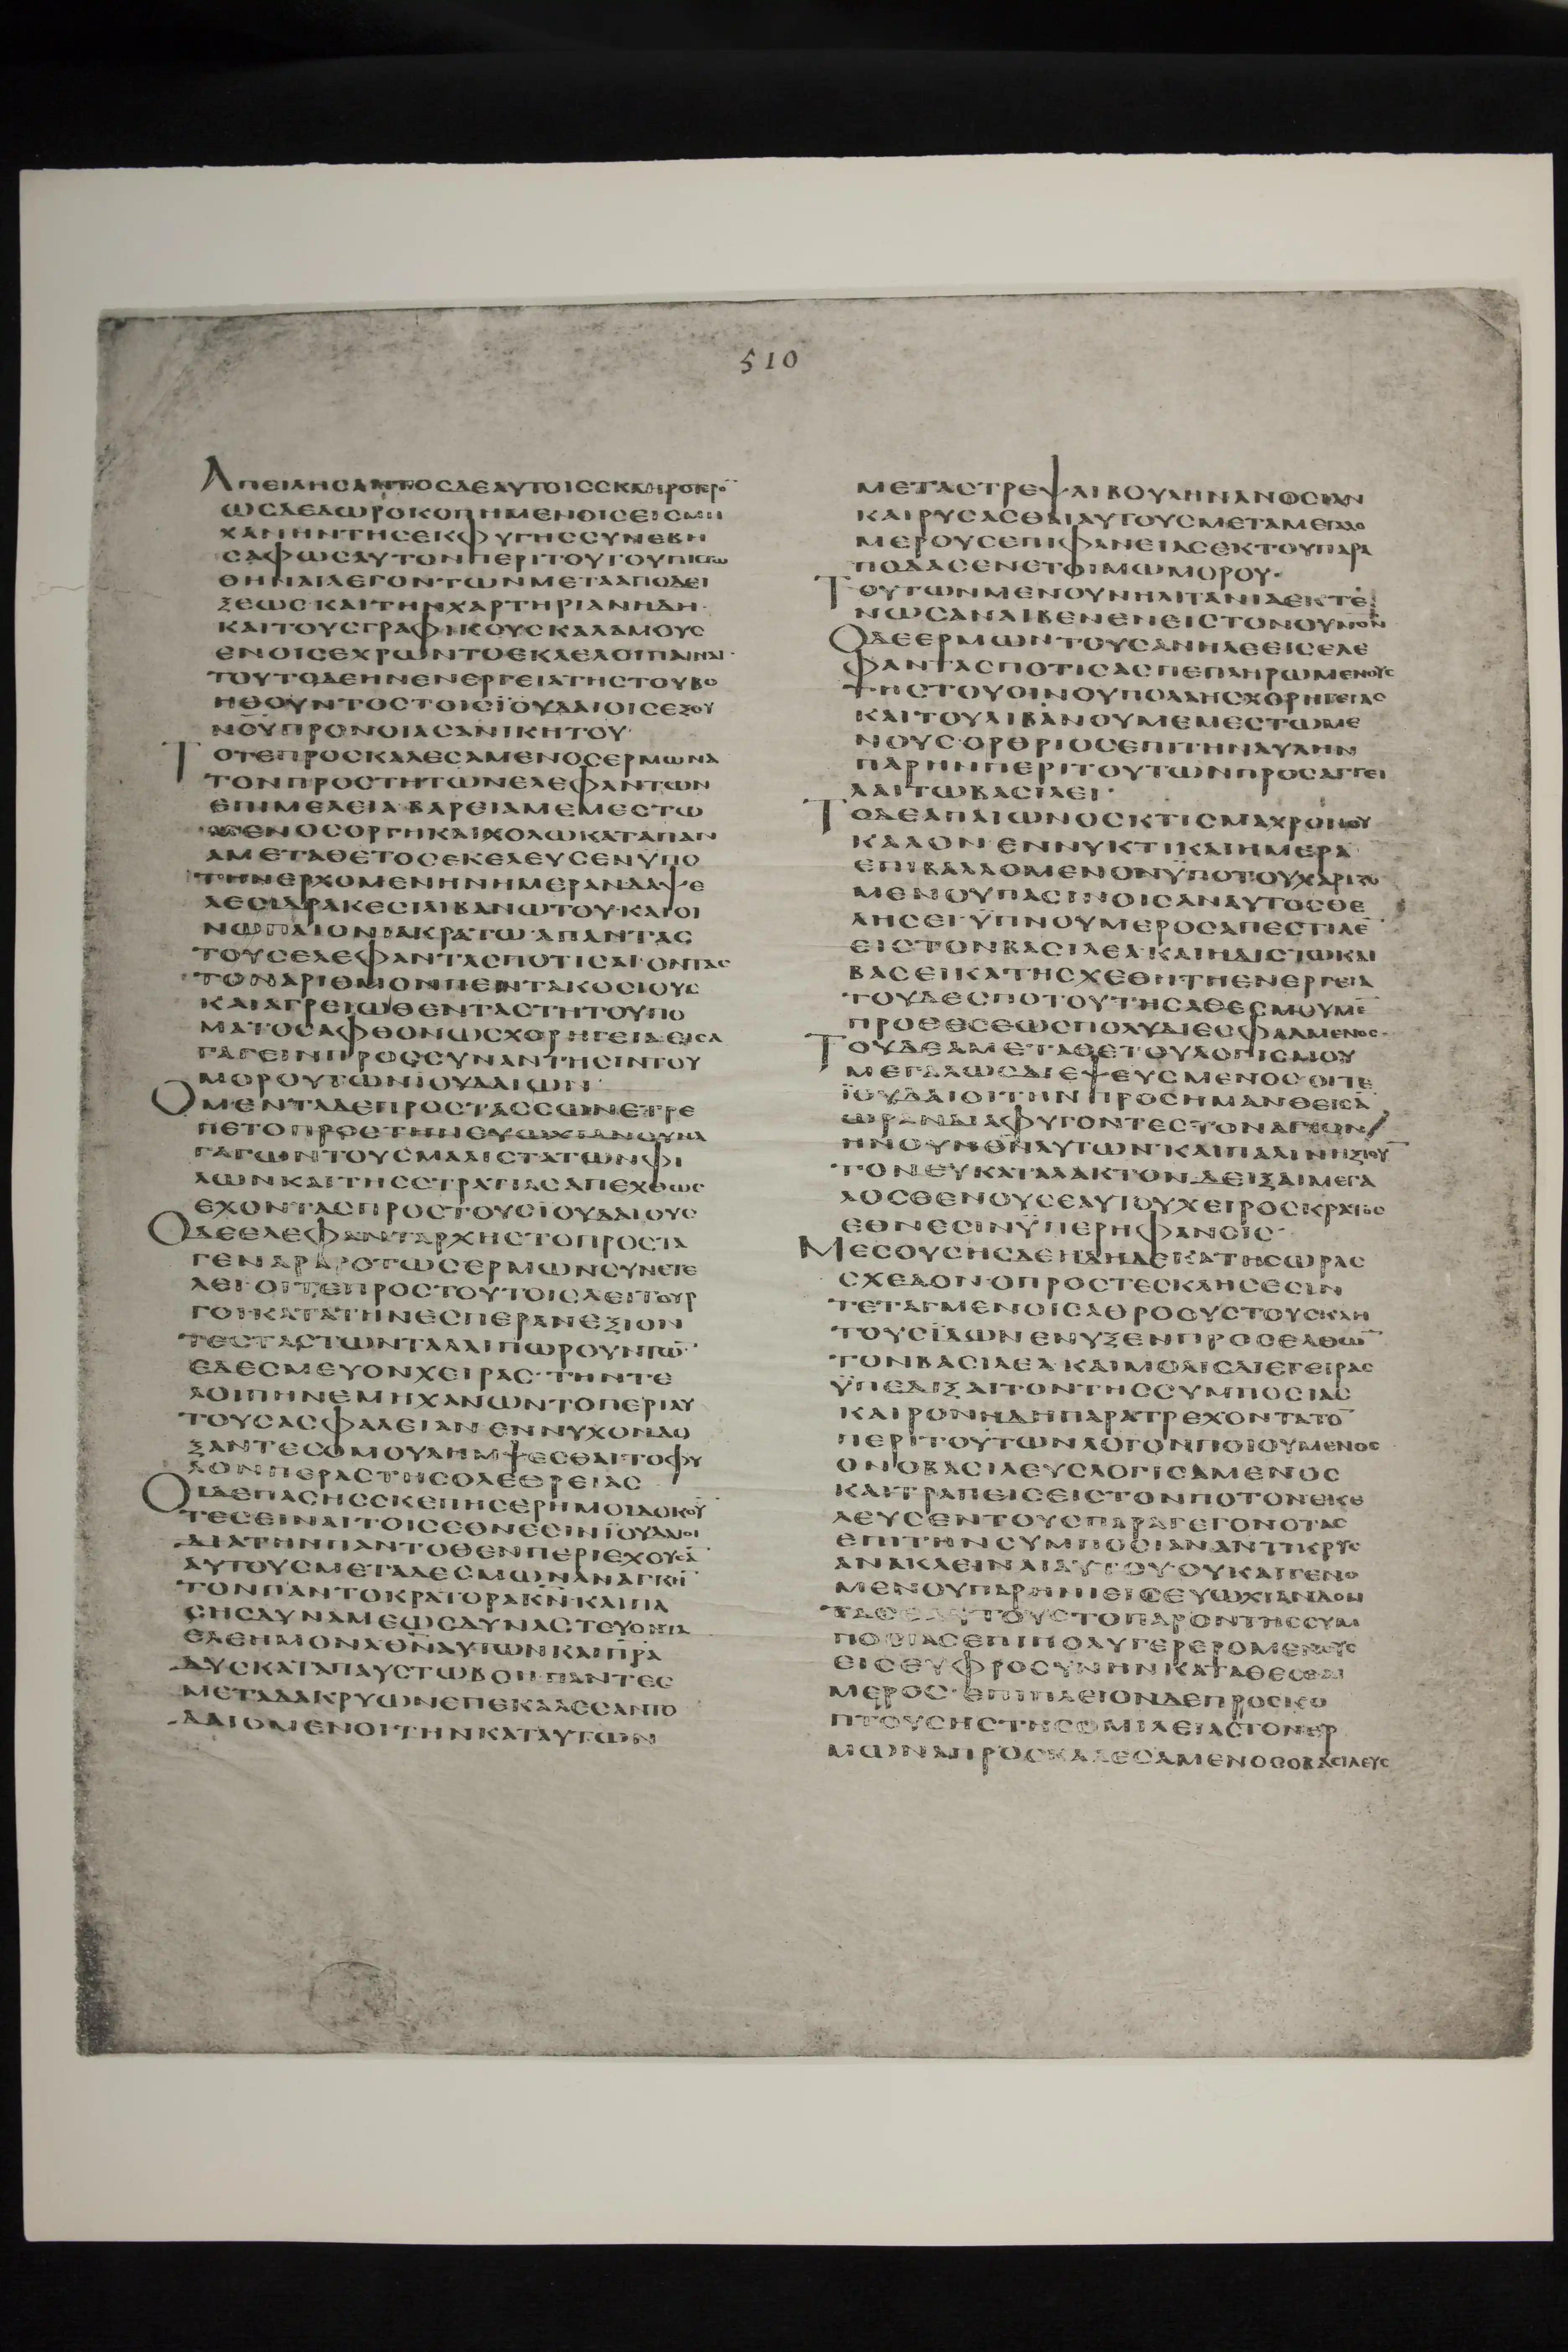 510
ΑΠΕΙΛΗСΑΝΤΟСΔΕΑΥΤΟΙССΚΛΗΡΟΤΕΡΟ̅
ΩСΔΕΔΩΡΟΚΟΠΗΜΕΝΟΙСΕΙСΜΗ
ΧΑΝΗΝΤΗСΕΚΦΥΓΗССΥΝΕΒΗ
СΑΦΩСΑΥΤΟΝΠΕΡΙΤΟΥΤΟΥΠΙСΤΩ
ΘΗΝΑΙΛΕΓΟΝΤΩΝΜΕΤΑΑΠΟΔΕΙ
ΞΕΩС·ΚΑΙΤΗΝΧΑΡΤΗΡΙΑΝΗΔΗ·
ΚΑΙΤΟΥСΓΡΑΦΙΚΟΥСΚΑΛΑΜΟΥС
ΕΝΟΙСΕΧΡΩΝΤΟΕΚΛΕΛΟΙΠΑΙΝΑΙ·
ΤΟΥΤΟΔΕΗΝΕΝΕΡΓΕΙΑΤΗСΤΟΥΒΟ
ΗΘΟΥΝΤΟСΤΟΙСΪΟΥΔΑΙΟΙСΕΞΟΥ
ΝΟΥΠΡΟΝΟΙΑСΑΝΙΚΗΤΟΥ·
ΤΟΤΕΠΡΟСΚΑΛΕСΑΜΕΝΟСΕΡΜΩΝΑ
ΤΟΝΠΡΟСΤΗΤΩΝΕΛΕΦΑΝΤΩΝ
ΕΠΙΜΕΛΕΙΑ·ΒΑΡΕΙΑΜΕΜΕСΤΩ
ΜΕΝΟСΟΡΓΗΚΑΙΧΟΛΩΚΑΤΑΠΑΝ
ΑΜΕΤΑΘΕΤΟСΕΚΕΛΕΥСΕΝΫΠΟ
ΤΗΝΕΡΧΟΜΕΝΗΝΗΜΕΡΑΝΔΑΨΕ
ΛΕСΙΔΡΑΚΕСΙΛΙΒΑΝΩΤΟΥ·ΚΑΙΟΙ
ΝΩΠΛΙΟΝΙΑΚΡΑΤΩ·ΑΠΑΝΤΑС
ΤΟΥСΕΛΕΦΑΝΤΑСΠΟΤΙСΑΙ·ΟΝΤΑС
ΤΟΝΑΡΙΘΜΟΝΠΕΝΤΑΚΟСΙΟΥС
ΚΑΙΑΓΡΕΙΩΘΕΝΤΑСΤΗΤΟΥΠΟ
ΜΑΤΟСΑΦΘΟΝΩСΧΟΡΗΓΕΙΑΕΙСΑ
ΓΑΓΕΙΝΠΡΟССΥΝΑΝΤΗСΙΝΤΟΥ
ΜΟΡΟΥΤΩΝΪΟΥΔΑΙΩΝ·
ΟΜΕΝΤΑΔΕΠΡΟСΤΑССΩΝΕΤΡΕ
ΠΕΤΟΠΡΟСΤΗΝΕΥΩΧΙΑΝСΥΝΑ
ΓΑΓΩΝΤΟΥСΜΑΛΙСΤΑΤΩΝΦΙ
ΛΩΝΚΑΙΤΗССΤΡΑΤΙΑСΑΠΕΧΘΩС
ΕΧΟΝΤΑСΠΡΟСΤΟΥСΪΟΥΔΑΙΟΥС
ΟΔΕΕΛΕΦΑΝΤΑΡΧΗСΤΟΠΡΟСΤΑ
ΓΕΝΑΡΑΡΟΤΩСΕΡΜΩΝСΥΝΕΤΕ
ΛΕΙ·ΟΙΤΕΠΡΟСΤΟΥΤΟΙСΛΕΙΤΟΥΡ
ΓΟΙ·ΚΑΤΑΤΗΝΕСΠΕΡΑΝΕΞΙΟΝ
ΤΕСΤΑСΤΩΝΤΑΛΑΙΠΩΡΟΥΝΤΩ̅
ΕΔΕСΜΕΥΟΝΧΕΙΡΑС·ΤΗΝΤΕ
ΛΟΙΠΗΝΕΜΗΧΑΝΩΝΤΟΠΕΡΙΑΥ
ΤΟΥСΑСΦΑΛΕΙΑΝΕΝΝΥΧΟΝΔΟ
ΞΑΝΤΕСΟΜΟΥΛΗΜΨΕСΘΑΙΤΟΦΥ
ΛΟΝΠΕΡΑСΤΗСΟΛΕΘΡΕΙΑС
ΟΙΔΕΠΑСΗССΚΕΠΗСΕΡΗΜΟΙΔΟΚΟΥ̅
ΤΕСΕΙΝΑΙΤΟΙСΕΘΝΕСΙΝΪΟΥΔΑΙΟΙ
ΔΙΑΤΗΝΠΑΝΤΟΘΕΝΠΕΡΙΕΧΟΥСΑ̅
ΑΥΤΟΥСΜΕΤΑΔΕСΜΩΝΑΝΑΓΚΗ̅
ΤΟΝΠΑΝΤΟΚΡΑΤΟΡΑΚ̅Ν̅ΚΑΙΠΑ
СΗСΔΥΝΑΜΕΩСΔΥΝΑСΤΕΥΟΝΤΑ
ΕΛΕΗΜΟΝΑΘ̅Ν̅ΑΥΤΩΝΚΑΙΠ̅Ρ̅Α
ΔΥСΚΑΤΑΠΑΥСΤΩΒΟΗΠΑΝΤΕС
ΜΕΤΑΔΑΚΡΥΩΝΕΠΕΚΑΛΕСΑΝΤΟ
ΔΑΙΟΜΕΝΟΙΤΗΝΚΑΤΑΥΤΩΝ
ΜΕΤΑСΤΡΕΨΑΙΒΟΥΛΗΝΑΝΟСΙΑΝ
ΚΑΙΡΥСΑСΘΑΙΑΥΤΟΥСΜΕΤΑΜΕΓΑΛΟ
ΜΕΡΟΥСΕΠΙΦΑΝΕΙΑСΕΚΤΟΥΠΑΡΑ
ΠΟΔΑСΕΝΕΤΟΙΜΩΜΟΡΟΥ·
ΤΟΥΤΩΝΜΕΝΟΥΝΗΛΙΤΑΝΙΑΕΚΤΕ
ΝΩСΑΝΑΙΒΕΝΕΝΕΙСΤΟΝΟΥΝΟΝ
ΟΔΕΕΡΜΩΝΤΟΥСΑΝΗΛΕΕΙСΕΛΕ
ΦΑΝΤΑСΠΟΤΙСΑСΠΕΠΛΗΡΩΜΕΝΟΥС
ΤΗСΤΟΥΟΙΝΟΥΠΟΛΛΗСΧΟΡΗΓΕΙΑС
ΚΑΙΤΟΥΛΙΒΑΝΟΥΜΕΜΕСΤΩΜΕ
ΝΟΥС·ΟΡΘΡΙΟСΕΠΙΤΗΝΑΥΛΗΝ
ΠΑΡΗΝΠΕΡΙΤΟΥΤΩΝΠΡΟСΑΓΓΕΙ
ΛΑΙΤΩΒΑСΙΛΕΙ·
ΤΟΔΕΑΠΑΙΩΝΟСΚΤΙСΜΑΧΡΟΝΟΥ
ΚΑΛΟΝ·ΕΝΝΥΚΤΙΚΑΙΗΜΕΡΑ
ΕΠΙΒΑΛΛΟΜΕΝΟΝΫΠΟΤΟΥΧΑΡΙΖΟ
ΜΕΝΟΥΠΑСΙΝΟΙСΑΝΑΥΤΟСΘΕ
ΛΗСΕΙ·ΫΠΝΟΥΜΕΡΟСΑΠΕСΤΙΛΕ
ΕΙСΤΟΝΒΑСΙΛΕΑ·ΚΑΙΗΔΙСΤΩΚΑΙ
ΒΑСΕΙΚΑΤΗСΧΕΘΗΤΗΕΝΕΡΓΕΙΑ
ΤΟΥΔΕСΠΟΤΟΥΤΗСΑΘΕСΜΟΥΜΕ̅
ΠΡΟΘΕСΕΩСΠΟΛΥΔΙΕСΦΑΛΜΕΝΟС·
ΤΟΥΔΕΑΜΕΤΑΘΕΤΟΥΛΟΓΙСΜΟΥ
ΜΕΓΑΛΩСΔΙΕΨΕΥСΜΕΝΟС·ΟΙΤΕ
ΪΟΥΔΑΙΟΙΤΗΝΠΡΟСΗΜΑΝΘΕΙСΑ
ΩΡΑΝΔΙΑΦΥΓΟΝΤΕСΤΟΝΑΓΙΟΝ
ΗΝΟΥΝΘ̅Ν̅ΑΥΤΩΝ·ΚΑΙΠΑΛΙΝΗΞΙΟΥ̅
ΤΟΝΕΥΚΑΤΑΛΛΑΚΤΟΝΔΕΙΞΑΙΜΕΓΑ
ΛΟСΘΕΝΟΥСΕΑΥΤΟΥΧΕΙΡΟСΚΡΑΤΟС
ΕΘΝΕСΙΝΫΠΕΡΗΦΑΝΟΙС·
ΜΕСΟΥСΗСΔΕΗΔΗΔΕΚΑΤΗСΩΡΑС
СΧΕΔΟΝ·ΟΠΡΟСΤΕСΚΛΗСΕСΙΝ
ΤΕΤΑΓΜΕΝΟΙСΑΘΡΟΟΥСΤΟΥСΚΛΗ
ΤΟΥСΪΔΩΝΕΝΥΞΕΝΠΡΟСΕΛΘΩ̅
ΤΟΝΒΑСΙΛΕΑ·ΚΑΙΜΟΛΙСΔΙΕΓΕΙΡΑС
ΫΠΕΔΙΞΑΙΤΟΝΤΗССΥΜΠΟСΙΑС
ΚΑΙΡΟΝΗΔΗΠΑΡΑΤΡΕΧΟΝΤΑΤΟ̅
ΠΕΡΙΤΟΥΤΩΝΛΟΓΟΝΠΟΙΟΥΜΕΝΟС
ΟΝΟΒΑСΙΛΕΥСΛΟΓΙСΑΜΕΝΟС
ΚΑΙΤΡΑΠΕΙСΕΙСΤΟΝΠΟΤΟΝΕΚΕ
ΛΕΥСΕΝΤΟΥСΠΑΡΑΓΕΓΟΝΟΤΑС
ΕΠΙΤΗΝСΥΜΠΟСΙΑΝΑΝΤΙΚΡΥС
ΑΝΑΚΛΕΙΝΑΙΑΥΤΟΥ·ΟΥΚΑΙΓΕΝΟ
ΜΕΝΟΥΠΑΡΗΝΕΙΕΙСΕΥΩΧΙΑΝΔΟΝ
ΤΑСΕΑΥΤΟΥСΤΟΠΑΡΟΝΤΗССΥΜ
ΠΟСΙΑСΕΠΙΠΟΛΥΓΕΡΕΡΟΜΕΝΟΥС
ΕΙСΕΥΦΡΟСΥΝΗΝΚΑΤΑΘΕСΘΑΙ
ΜΕΡΟС·ΕΠΙΠΛΕΙΟΝΔΕΠΡΟСΚΟ
ΠΤΟΥСΗСΤΗСΟΜΙΛΕΙΑСΤΟΝΕΡ
ΜΩΝΑΠΡΟСΚΑΛΕСΑΜΕΝΟСΟΒΑСΙΛΕΥС